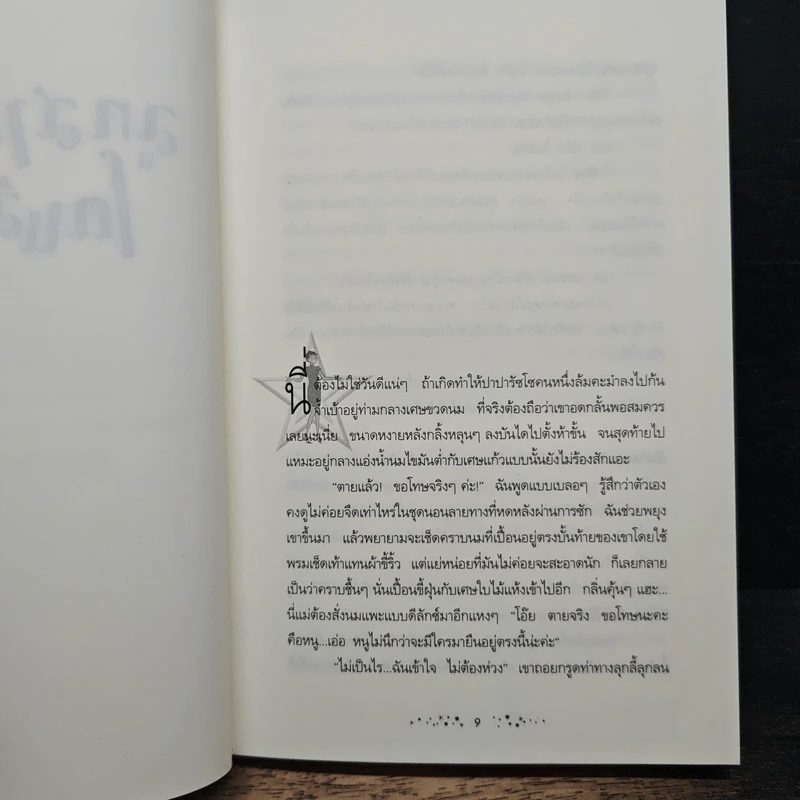 นี่ต้องไม่ใช่วันดีแน่ๆ ถ้าเกิดทำให้ปาปารัซโซคนหนึ่งล้มคะมำลงไปก้น
จ้ำเบ้าอยู่ท่ามกลางเศษขวดนม ที่จริงต้องถือว่าเขาอดกลั้นพอสมควร
เลยนะเนี่ย ขนาดหงายหลังกลิ้งหลุนๆ ลงบันไดไปตั้งห้าขั้น จนสุดท้ายไป
แหมะอยู่กลางแอ่งน้ำนมไขมันต่ำกับเศษแก้วแบบนั้นยังไม่ร้องสักแอะ
"ตายแล้ว! ขอโทษจริงๆ ค่ะ!" ฉันพูดแบบเบลอๆ รู้สึกว่าตัวเอง
คงดูไม่ค่อยจืดเท่าไหร่ในชุดนอนลายทางที่หดหลังผ่านการซัก ฉันช่วยพยุง
เขาขึ้นมา แล้วพยายามจะเช็ดคราบนมที่เปื้อนอยู่ตรงบั้นท้ายของเขาโดยใช้
พรมเช็ดเท้าแทนผ้าขี้ริ้ว แต่แย่หน่อยที่มันไม่ค่อยจะสะอาดนัก ก็เลยกลาย
เป็นว่าคราบชื้นๆ นั่นเปื้อนขี้ฝุ่นกับเศษใบไม้แห้งเข้าไปอีก กลิ่นคุ้นๆ แฮะ...
นี่แม่ต้องสั่งนมแพะแบบดีลักซ์มาอีกแหงๆ "โอ๊ย ตายจริง ขอโทษนะคะ
คือหนู...เอ่อ หนูไม่นึกว่าจะมีใครมายืนอยู่ตรงนี้น่ะค่ะ"
"ไม่เป็นไร...ฉันเข้าใจ ไม่ต้องห่วง" เขาถอยกรูดท่าทางลุกลี้ลุกลน
9